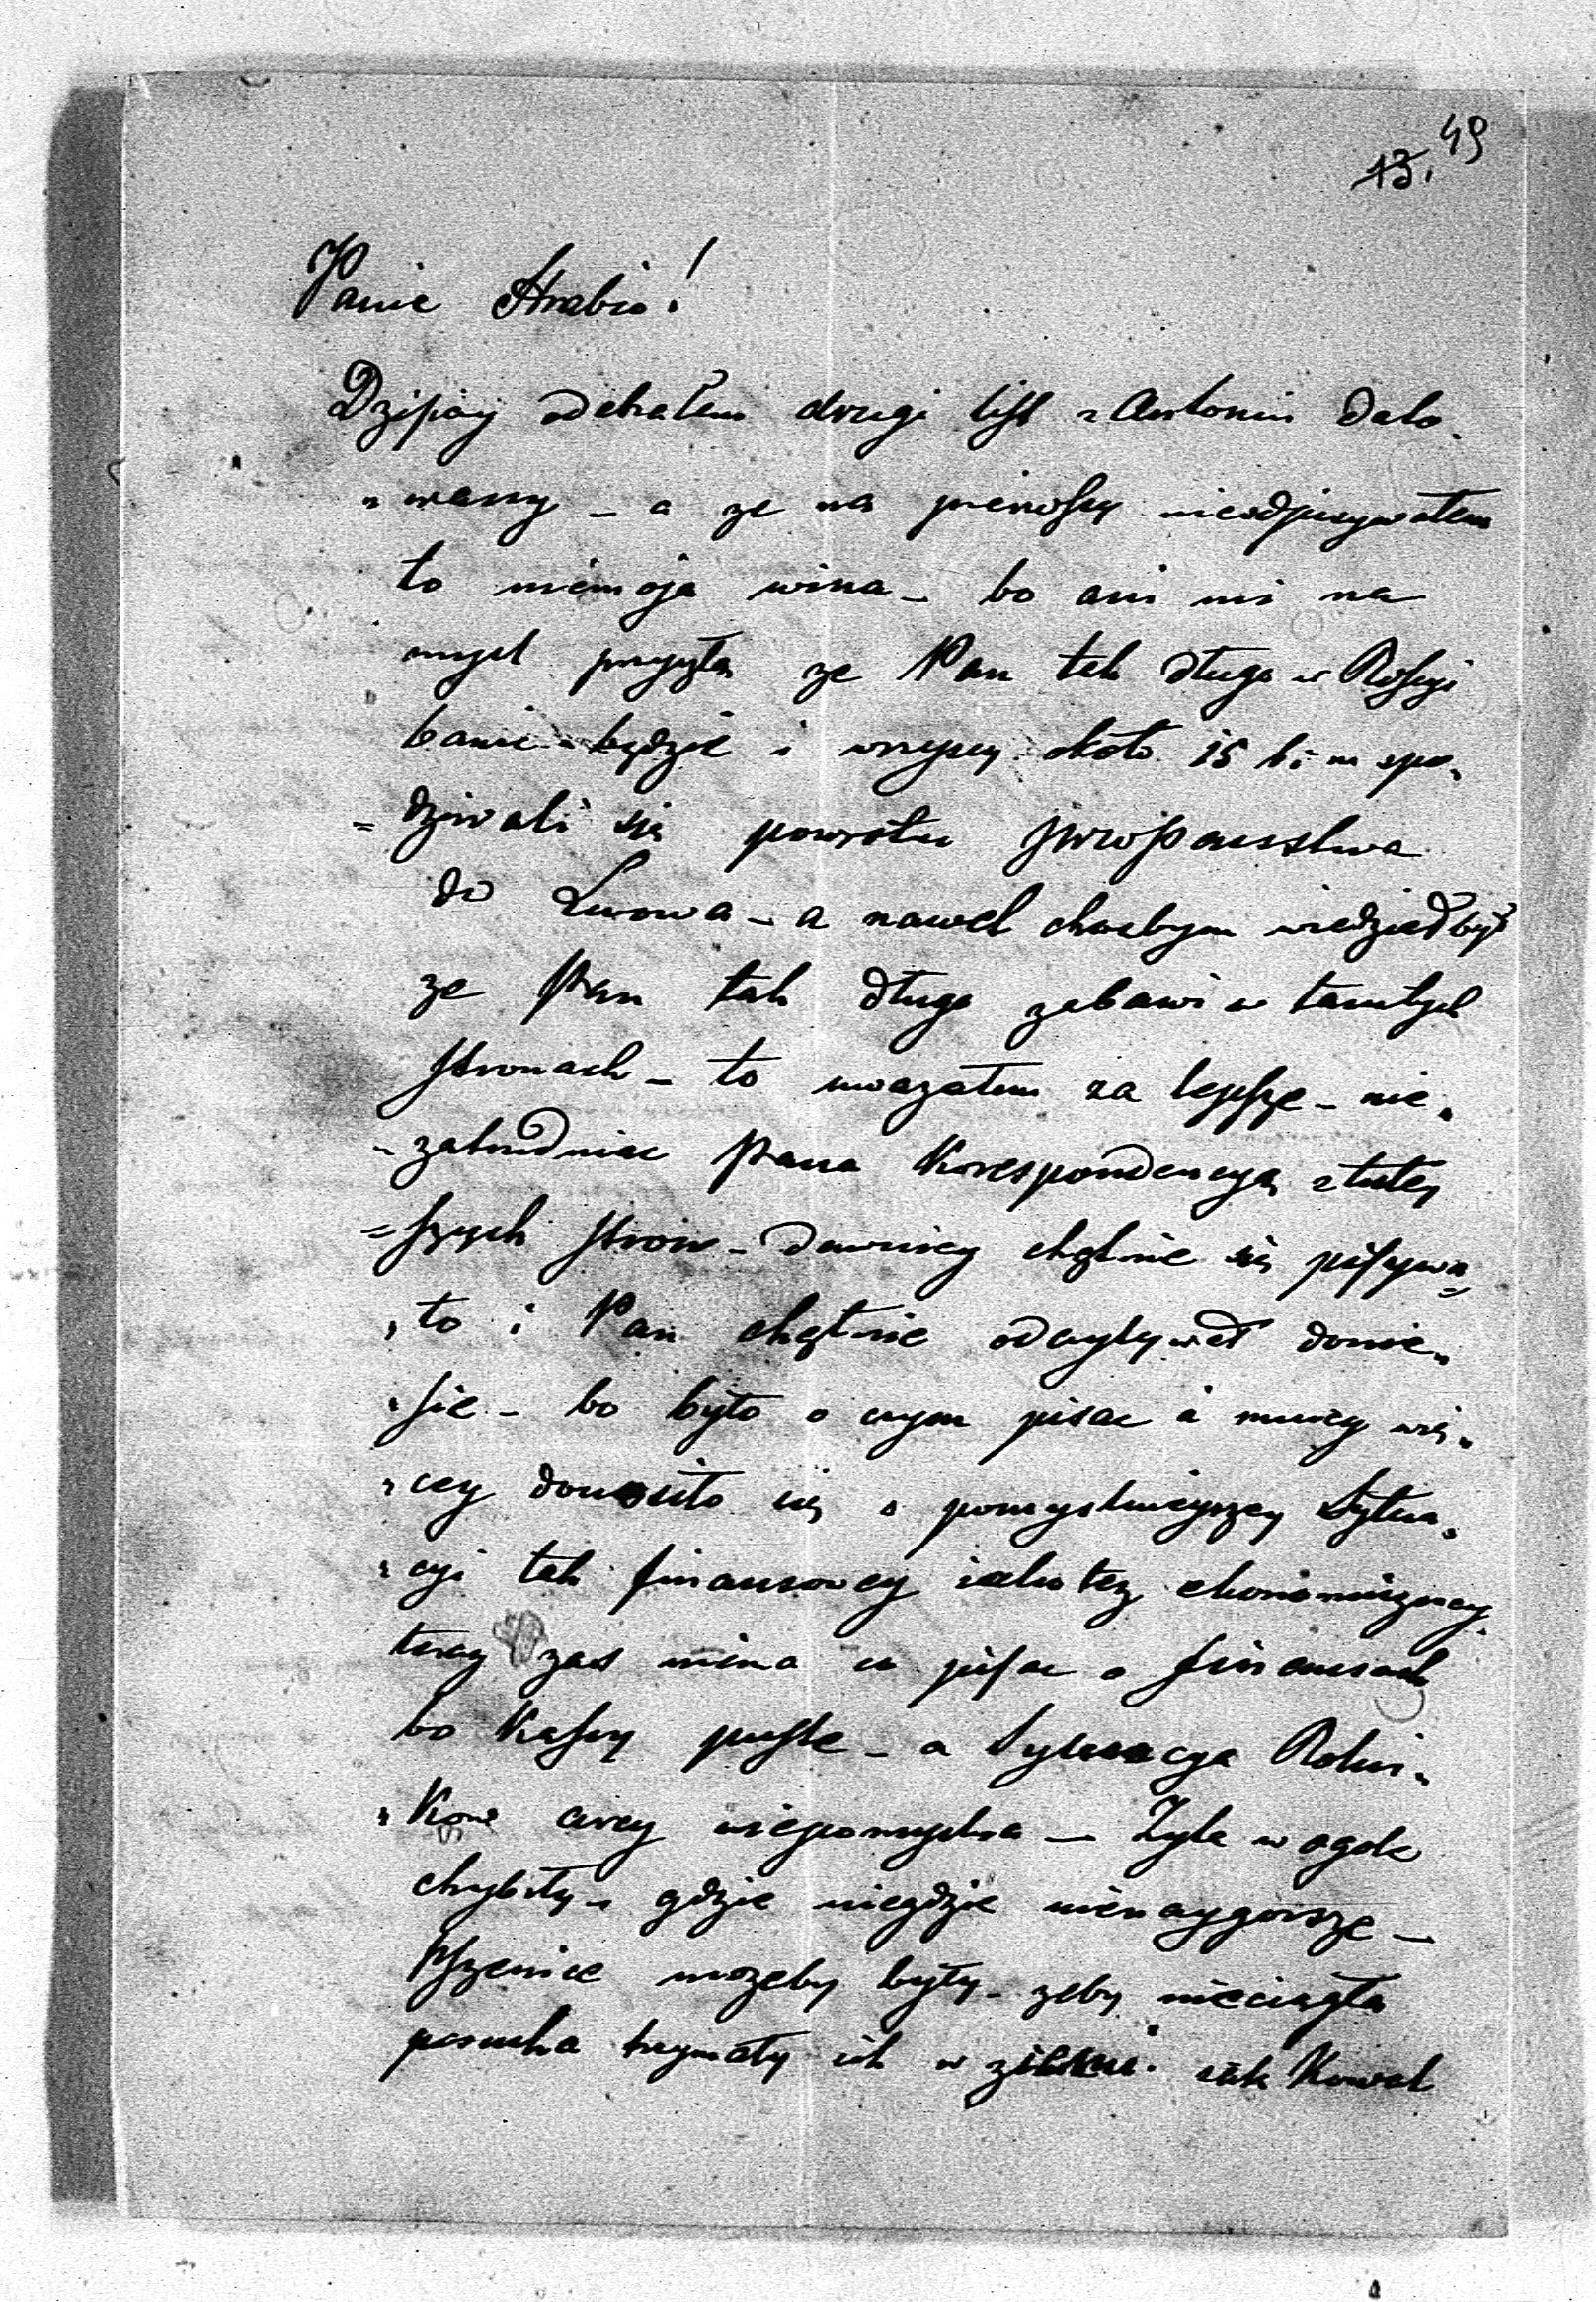 49
13.
Panie Hrabio!
Dzisiay odebrałem drugi list z Antonin dato„
„wany – a ze na pierwszy nieodpisywałem
to niemoja wina – bo ani mi na
mysl przyszła ze Pan tak długo w Rossyi
bawic będzie i wszyscy około 15 b: m spo„
=dziwali się powrotu JWWPanstwa
do Lwowa – a nawet chocbym wiedział był
ze Pan tak długo zabawi w tamtych
stronach – to uwazałem za lepsze – nie„
„zatrudniac Pana Korespondencyą z tutey
=szych stron – dawniey chętnie się pisywa„
„ło i Pan chętnie odczytywał donie„
„sie – bo było o czym pisac i mniey wię„
„cey donosiło się o pomyslnieyszey Sytua„
„cyi tak finansowey iako tez ekonomiczney
teraz zas niema co pisac o finansach
bo Kassy puste – a Sytuacya Rolni„
„Kow arcy niepomyslna – Zyta w ogole
chybiły – gdzie niegdzie nienaygorsze –
Pszenice mozeby były – zeby nieciągła
posucha trzymały ich w ziemi iak Kowal